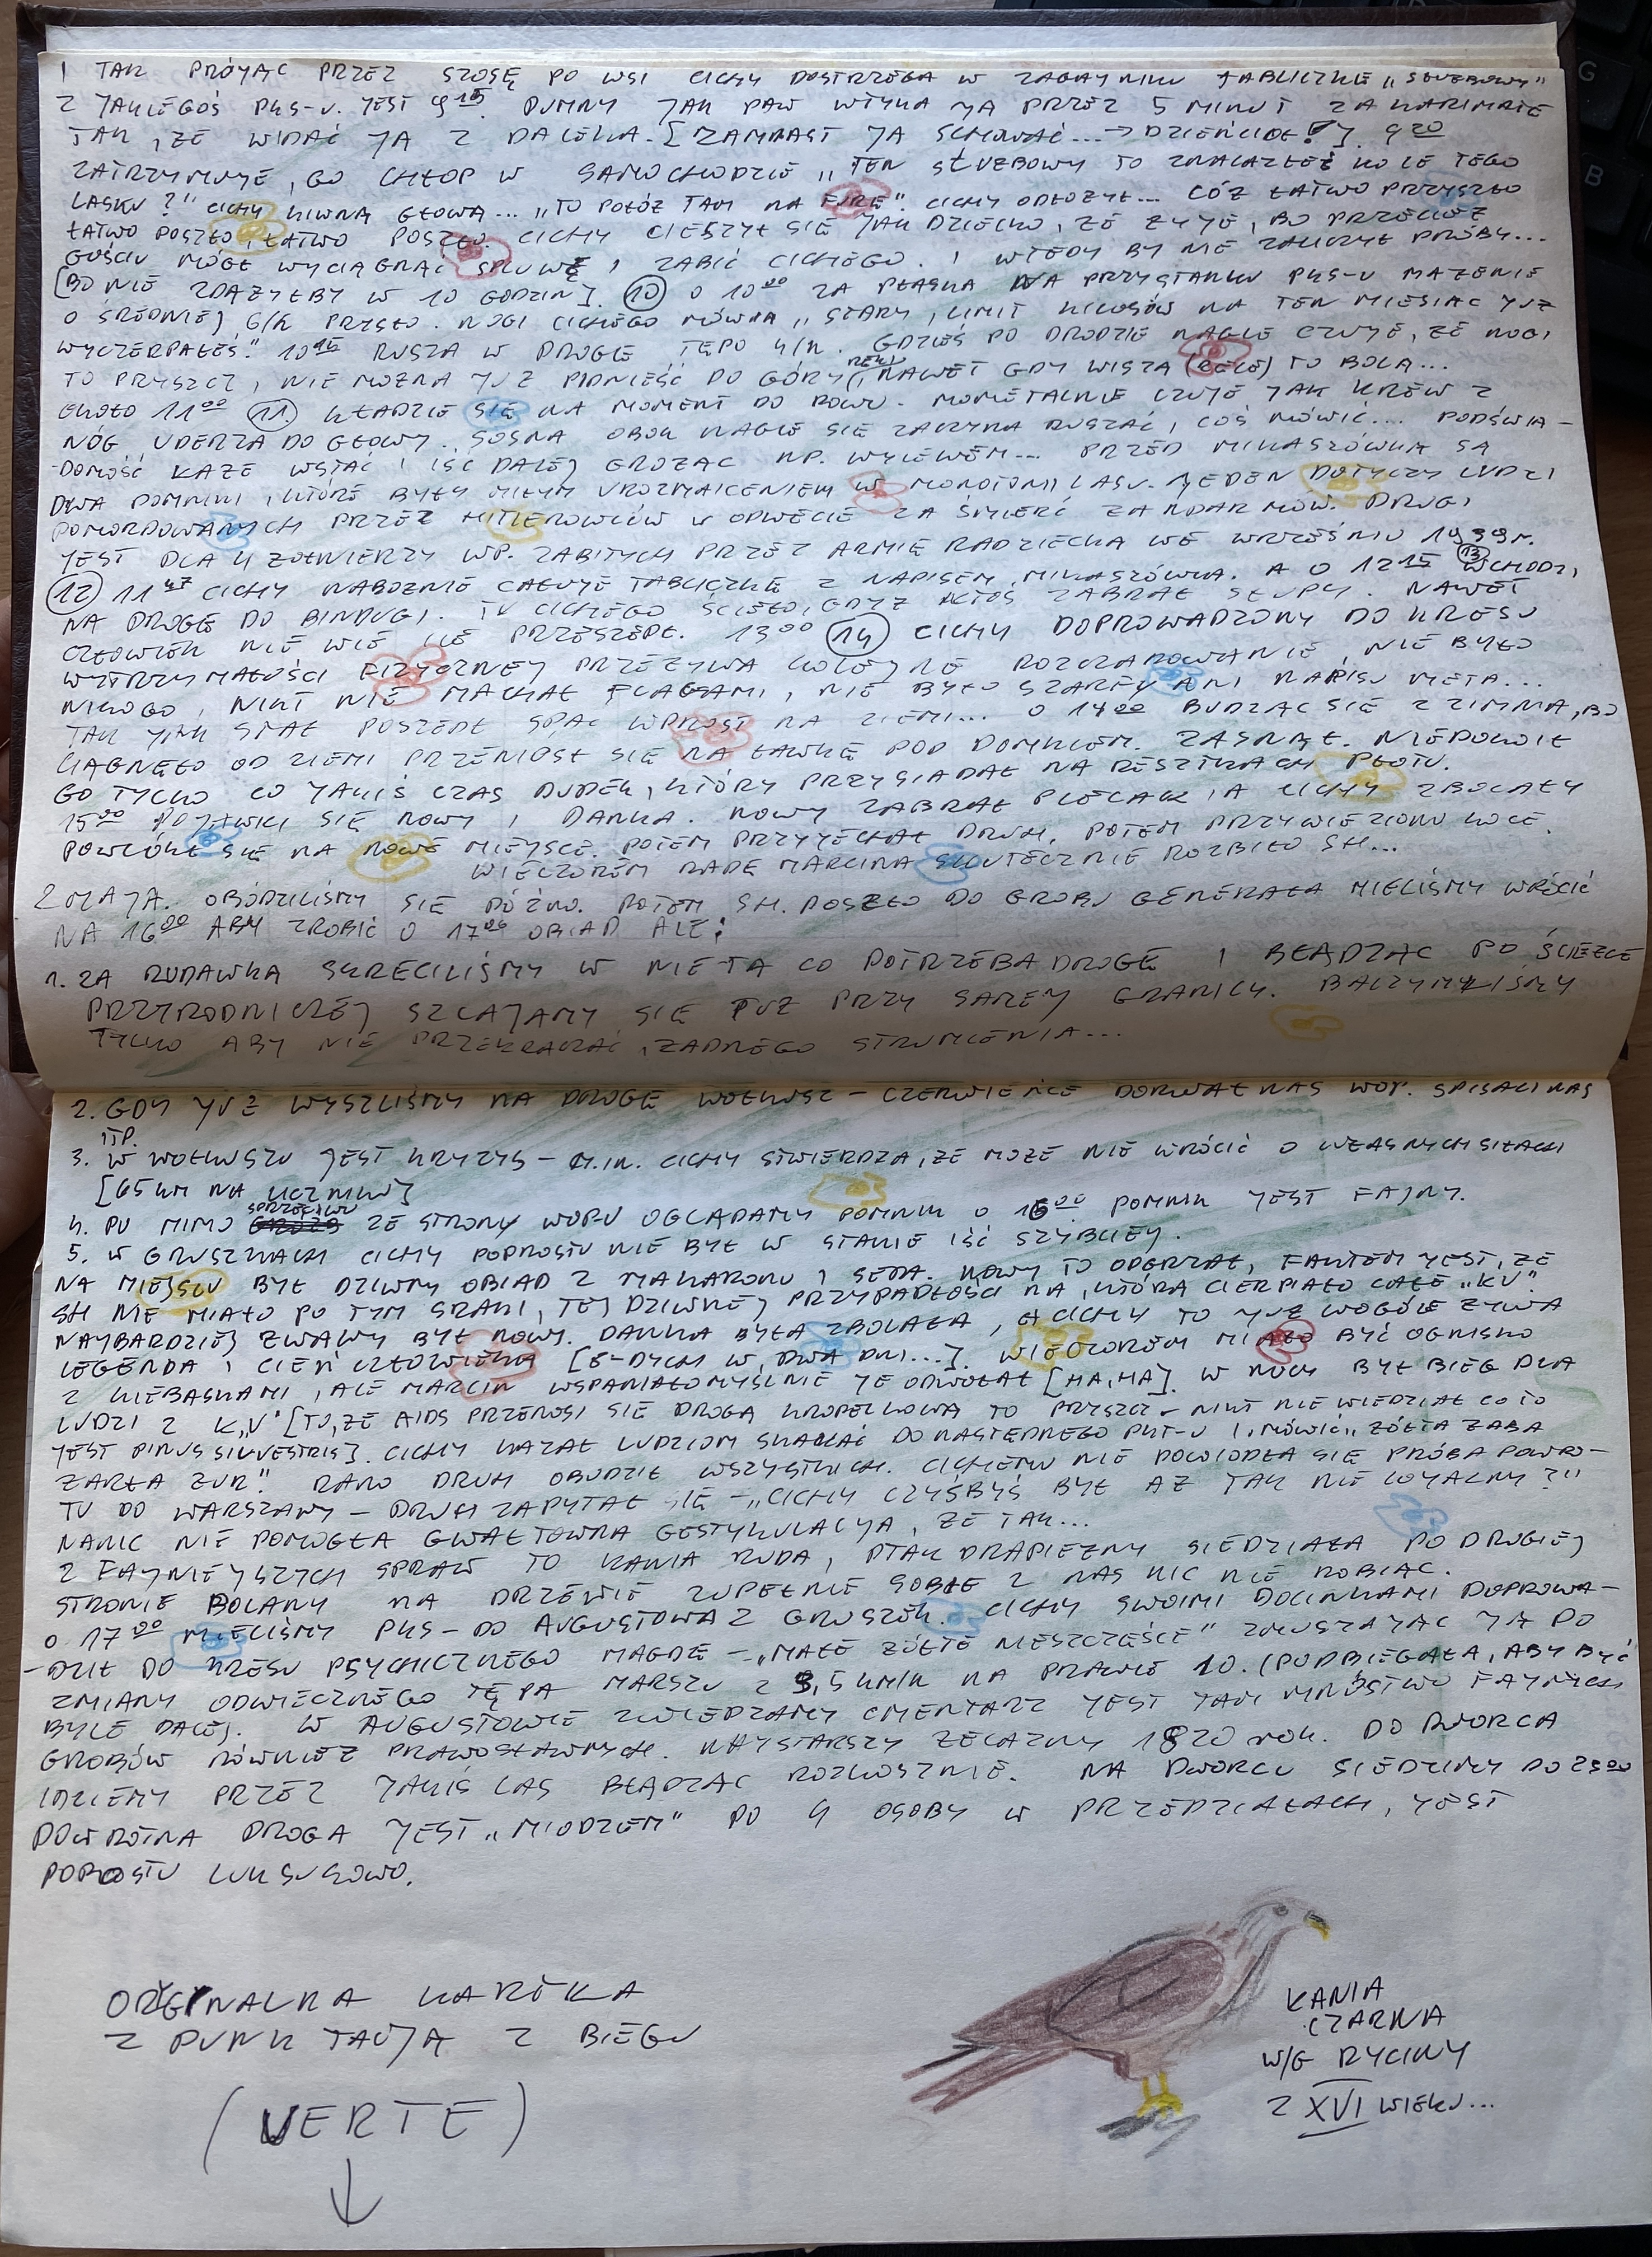 I TAK PRÓJĄC PRZEZ SZOSĘ PO WSI CICHY DOSTRZEGA W ZAGAJNIKU TABLICZKĘ „SŁUŻBOWY"
Z JAKIEGOŚ PKS-U. JEST 9 15. DUMNY JAK PAW WTYKA JĄ PRZEZ 5 MINUT ZA KARIMATĘ
TAK, ŻE WIDAĆ JĄ Z DALEKA. [ZAMIAST JĄ SCHOWAĆ... → DZIEŃCIOŁ!]. 9 20
ZATRZYMUJE, GO CHŁOP W SAMOCHODZIE „TEN SŁUŻBOWY TO ZNALAZŁEŚ KOLE TEGO
LASKU?" CICHY KIWNĄ GŁOWĄ... „TO POŁÓŻ TAM NA FURĘ". CICHY ODŁOŻYŁ... CÓŻ ŁATWO PRZYSZŁO
ŁATWO POSZŁO, ŁATWO POSZŁO CICHY CIESZYŁ SIĘ JAK DZIECKO, ŻE ŻYJE, BO PRZECIEŻ
GOŚCIU MÓGŁ WYCIĄGNĄĆ SPLUWĘ I ZABIĆ CICHEGO. I WTEDY BY NIE ZALICZYŁ PRÓBY...
[BO NIE ZDĄŻYŁBY W 10 GODZIN]. (10) O 10 00 ZA PŁASKĄ NA PRZYSTANKU PKS-U MAŻENIE
O ŚREDNIEJ 6/H PRYSŁO. NOGI CICHEGO MÓWIĄ „STARY, LIMIT KILOSÓW NA TEN MIESIĄC JUŻ
WYCZERPAŁEŚ". 10 15 RUSZA W DROGĘ TĘPO 4/H. GDZIEŚ PO DRODZE NAGLE CZUJE, ŻE NOGI
TO PRYSZCZ, NIE MOŻNA JUŻ PODNIEŚĆ DO GÓRY RĘKI, NAWET GDY WISZĄ (RĘCE) TO BOLĄ...
OKOŁO 11 00 (11). KŁADZIE SIĘ NA MOMENT DO ROWU. MOMĘTALNIE CZUJE JAK KREW Z
NÓG UDERZA DO GŁOWY. SOSNA OBOK NAGLE SIĘ ZACZYNA RUSZAĆ, COŚ MÓWIĆ... PODŚWIA-
-DOMOŚĆ KAŻE WSTAĆ I IŚĆ DALEJ GROŻĄC NP. WYLEWEM... PRZED MIKASZÓWKĄ SĄ
DWA POMNIKI, KTÓRE BYŁY MIŁYM UROZMAICENIEM W MONOTONII LASU. JEDEN DOTYCZY LUDZI
POMORDOWANYCH PRZEZ HITLEROWCÓW W ODWECIE ZA ŚMIERĆ ŻANDARMÓW. DRUGI
JEST DLA 4 ŻOŁNIERZY WP. ZABITYCH PRZEZ ARMIĘ RADZIECKĄ WE WRZEŚNIU 1939 r.
(12) 11 47 CICHY NABOŻNIE CAŁUJE TABLICZKĘ Z NAPISEM „MIKASZÓWKA. A O 12 15 (13) WCHODZI,
NA DROGĘ DO BINDUGI. TU CICHEGO ŚCIĘŁO, GDYŻ KTOŚ ZABRAŁ SŁUPY. NAWET
CZŁOWIEK NIE WIE ILE PRZESZEDŁ. 13 00 (14) CICHY DOPROWADZONY DO KRESU
WYTRZYMAŁOŚCI FIZYCZNEJ PRZEŻYWA KOLEJNE ROZCZAROWANIE, NIE BYŁO
NIKOGO, NIKT NIE MACHAŁ FLAGAMI, NIE BYŁO SZARFY ANI NAPISU META...
TAK JAK STAŁ POSZEDŁ SPAĆ WPROST NA ZIEMI... O 14 00 BUDZĄC SIĘ Z ZIMNA, BO
CIĄGNĘŁO OD ZIEMI PRZENIÓSŁ SIĘ NA ŁAWKĘ POD DOMKIEM. ZASNĄŁ. NIEPOKOIŁ
GO TYLKO CO JAKIŚ CZAS DUDEK, KTÓRY PRZYSIADAŁ NA RESZTKACH PŁOTU.
15 00 POJAWILI SIĘ NOWY I DANKA. NOWY ZABRAŁ PLECAK, A CICHY ZBOLAŁY
POWLÓKŁ SIĘ NA NOWE MIEJSCE. POTEM PRZYJECHAŁ DRUH, POTEM PRZYWIEZIONO KOCE.
WIECZOREM RADĘ MARCINA SKUTECZNIE ROZBIŁO SH...
2 MAJA. OBUDZILIŚMY SIĘ PÓŹNO. POTEM SH. POSZŁO DO GROBU GENERAŁA MIELIŚMY WRÓCIĆ
NA 16 00 ABY ZROBIĆ O 17 00 OBIAD ALE:
1. ZA RUDAWKĄ SKRĘCILIŚMY W NIE TĄ CO POTRZEBA DROGĘ I BŁĄDZĄC PO ŚCIEŻCE
PRZYRODNICZEJ SZLAJAMY SIĘ TUŻ PRZY SAMEJ GRANICY. BACZYMYLIŚMY
TYLKO ABY NIE PRZEKRACZAĆ, ŻADNEGO STRUMIENIA...
2. GDY JUŻ WYSZLIŚMY NA DROGĘ WOŁKUSZ – CZERWIEŃCE DORWAŁ NAS WOP. SPISALI NAS
ITP.
3. W WOŁKUSZU JEST KRYZYS – M.IN. CICHY STWIERDZA, ŻE MOŻE NIE WRÓCIĆ O WŁASNYCH SIŁACH
[65 KM NA LICZNIKU]
4. PO MIMO SPRZECIWU ZE STRONY WOPU OGLĄDAMY POMNIK O 16 00 POMNIK JEST FAJNY.
5. W GRUSZKACH CICHY POPROSTU NIE BYŁ W STANIE IŚĆ SZYBCIEJ.
NA MIEJSCU BYŁ DZIWNY OBIAD Z MAKARONU I SERA. NOWY TO ODGRZAŁ, FAKTEM JEST, ŻE
SH NIE MIAŁO PO TYM SRAKI, TEJ DZIWNEJ PRZYPADŁOŚCI NA, KTÓRĄ CIERPIAŁO CAŁE „KV".
NAJBARDZIEJ ŻWAWY BYŁ NOWY. DANKA BYŁA ZBOLAŁA, A CICHY TO JUŻ WOGÓLE ŻYWA
LEGENDA I CIEŃ CZŁOWIEKA [8-DYCH W DWA DNI...]. WIECZOREM MIAŁO BYĆ OGNISKO
Z KIEŁBASKAMI, ALE MARCIN WSPANIAŁOMYŚLNIE JE ODWOŁAŁ [HA, HA]. W NOCY BYŁ BIEG DLA
LUDZI Z K„V" [TO, ŻE AIDS PRZENOSI SIĘ DROGĄ KROPELKOWĄ TO PRYSZCZ – NIKT NIE WIEDZIAŁ CO TO
JEST PINUS SILVESTRIS]. CICHY KAZAŁ LUDZIOM SKAKAĆ DO NASTĘPNEGO PKT-U I „MÓWIĆ „ŻÓŁTA ŻABA
ŻARŁA ŻUR". RANO DRUH OBUDZIŁ WSZYSTKICH. CICHEMU NIE POWIODŁA SIĘ PRÓBA POWRO-
TU DO WARSZAWY – DRUH ZAPYTAŁ SIĘ – „CICHY CZYŚBYŚ BYŁ AŻ TAK NIE LOYALNY?"
NANIC NIE POMOGŁA GWAŁTOWNA GESTYKULACJA, ŻE TAK...
Z FAJNIEJSZYCH SPRAW TO KANIA RUDA, PTAK DRAPIEŻNY SIEDZIAŁA PO DRUGIEJ
STRONIE POLANY NA DRZEWIE ZUPEŁNIE SOBIE Z NAS NIC NIE ROBIĄC.
O 17 00 MIELIŚMY PKS – DO AUGUSTOWA Z GRUSZEK. CICHY SWOIMI DOCINKAMI DOPROWA-
-DZIŁ DO KRESU PSYCHICZNEGO MAGDĘ – „MAŁE ŻÓŁTE NIESZCZĘŚCIE" ZMUSZAJĄC JĄ DO
ZMIANY ODWIECZNEGO TĘPA MARSZU Z 3,5 KM/H NA PRAWIE 10. (PODBIEGAŁA, ABY BYĆ
BYLE DALEJ. W AUGUSTOWIE ZWIEDZAMY CMENTARZ JEST TAM MNÓSTWO FAJNYCH
GROBÓW RÓWNIEŻ PRAWOSŁAWNYCH. NAJSTARSZY ŻELAZNY 1820 rok. DO DWORCA
IDZIEMY PRZEZ JAKIŚ LAS BŁĄDZĄC ROZKOSZNIE. NA DWORCU SIEDZIMY DO 23 00
POWROTNA DROGA JEST „MIODZEM" PO 4 OSOBY W PRZEDZIAŁACH, JEST
POPROSTU LUKSUSOWO.
ORYGINALNA KARTKA
Z PUNKTACJĄ Z BIEGU
(VERTE)
KANIA
CZARNA
W/G RYCINY
Z XVI WIEKU...